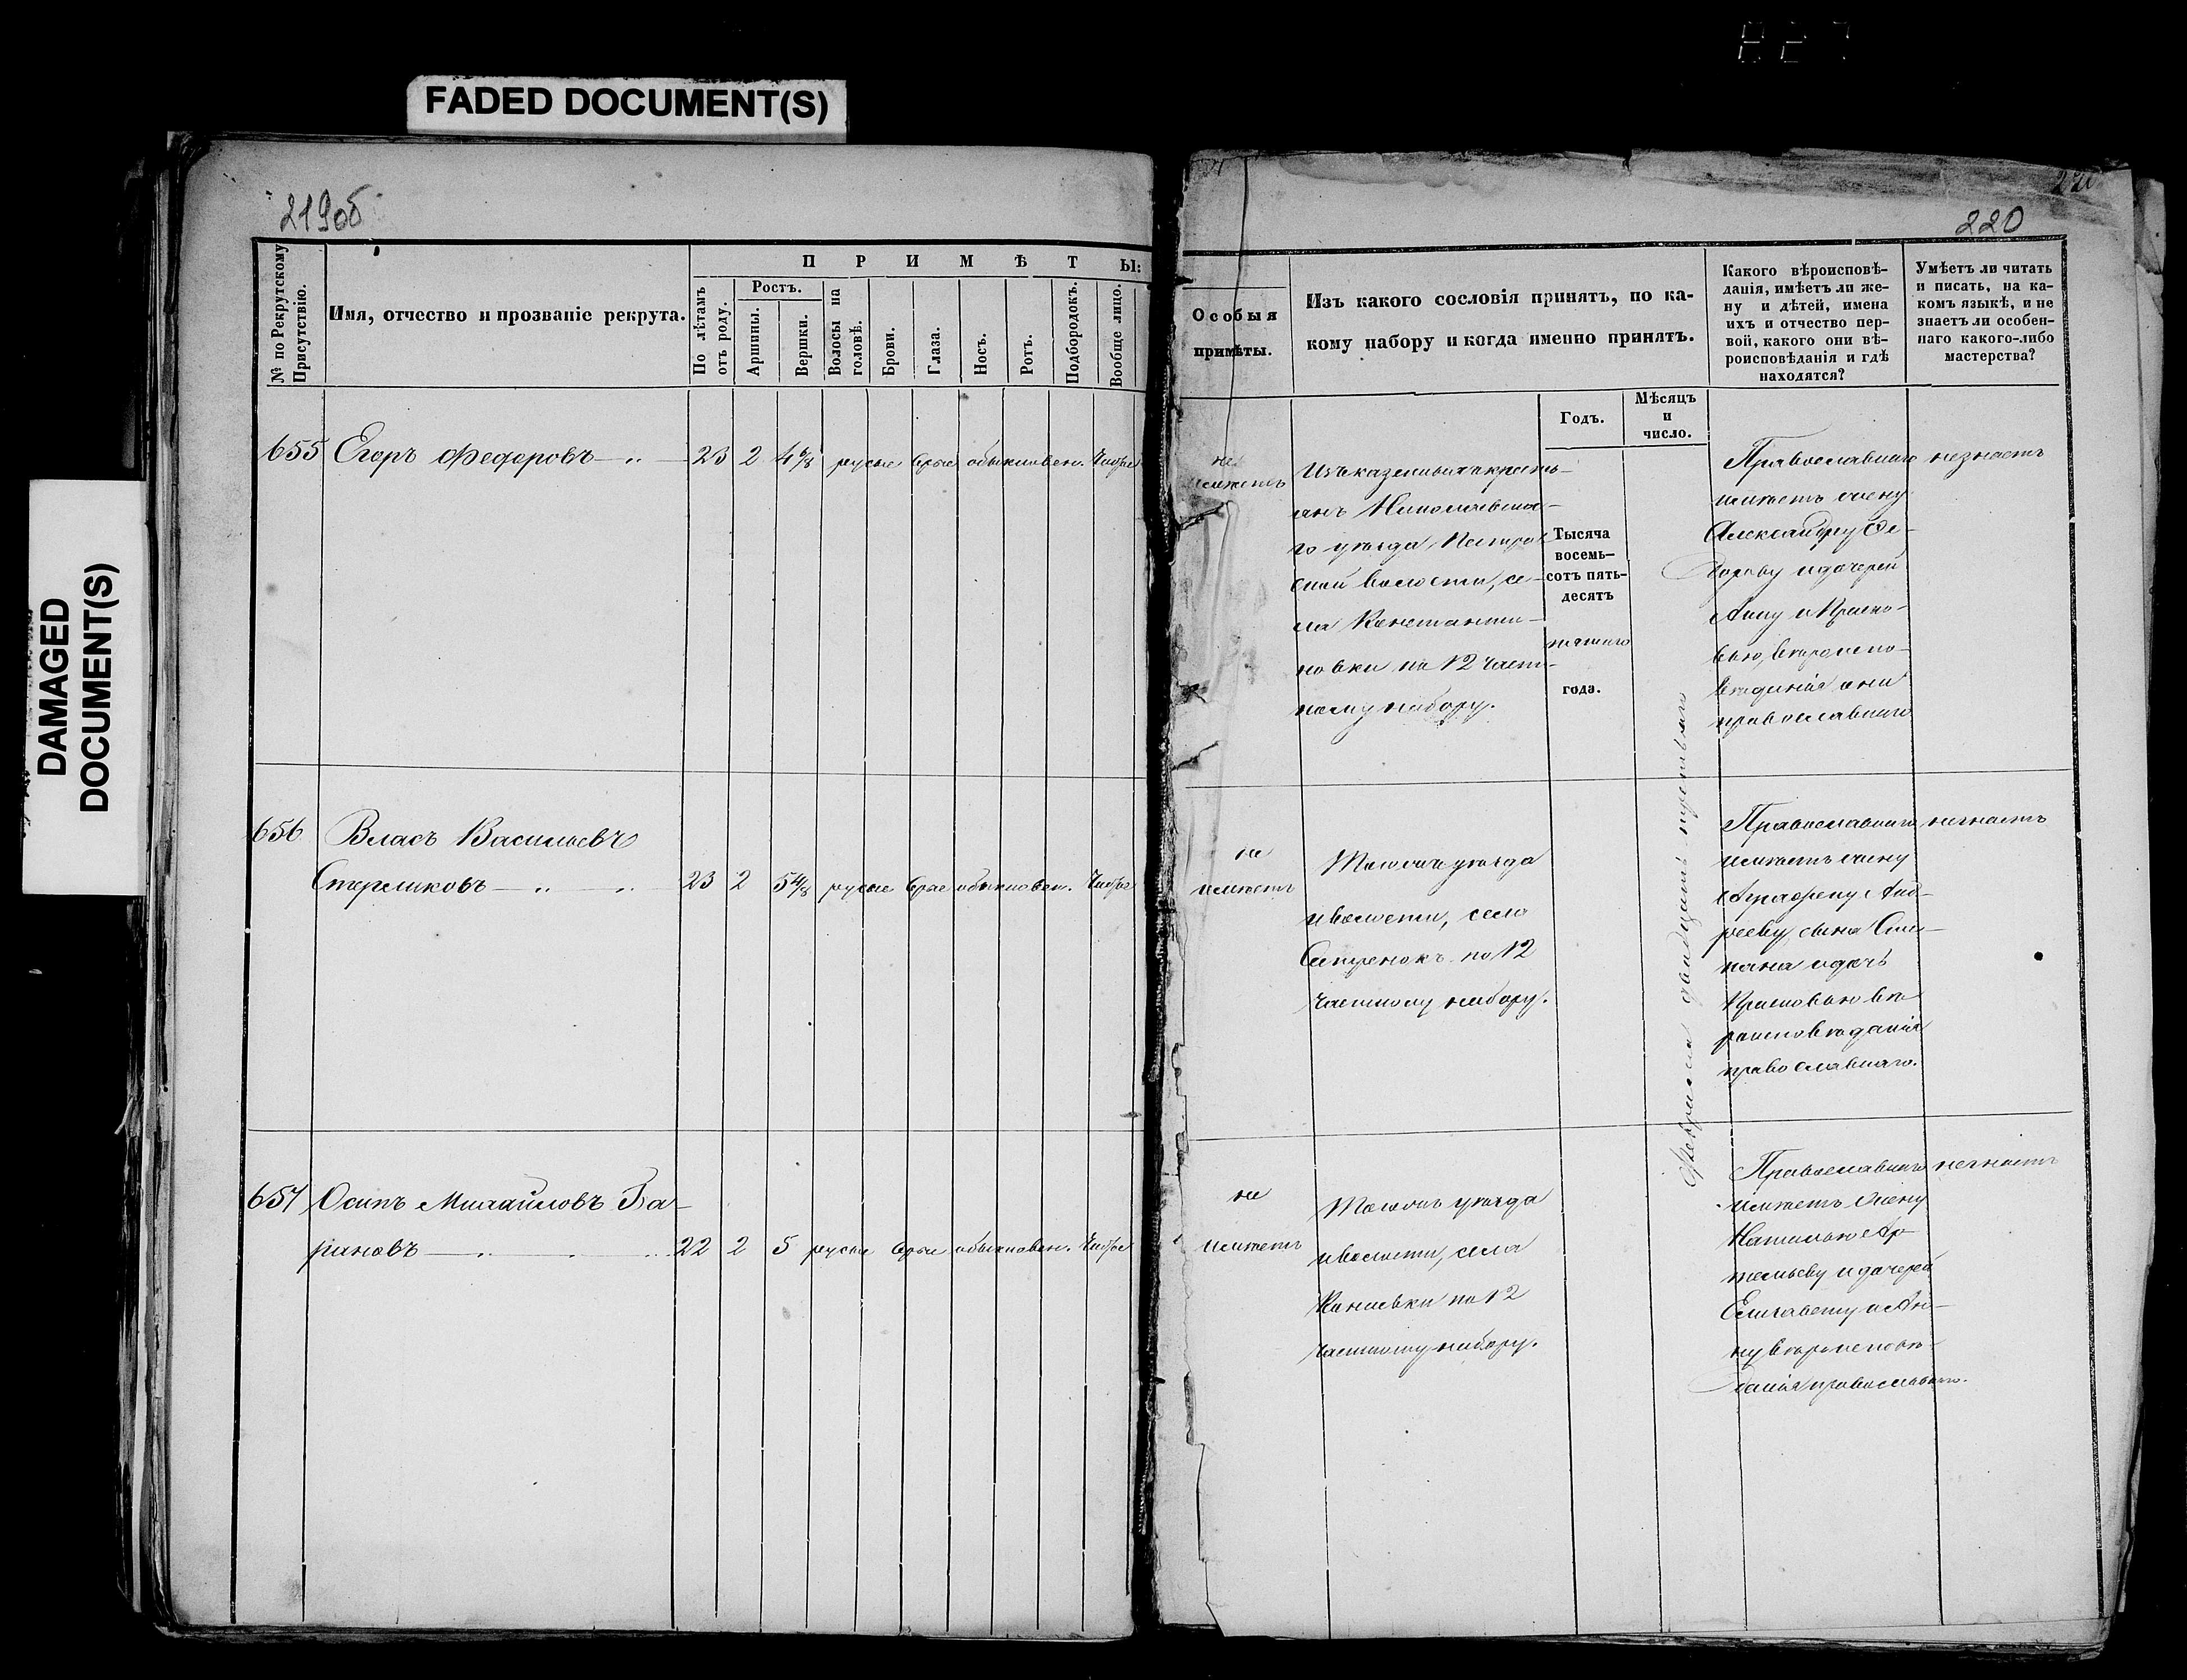 FADED DOCUMENT(S)
DAMAGED
DOCUMENT(S)
219об
№ по Рекрутскому
Присутствію.
Имя, отчество и прозваніе рекрута.
П Р И М Ѣ Т Ы:
По лѣтамъ
отъ роду.
Ростъ.
Аршины.
Вершки.
Волосы на
головѣ.
Брови.
Глаза.
Носъ.
Ротъ.
Подбородокъ.
Вообще лицо.
655 Егоръ Федоровъ 23 2 4 6/8 русые сѣрые обыкновен. Чистое
656 Власъ Васильевъ
Стерликовъ 23 2 5 4/8 русые сѣрые обыкновен. Чистое
657 Осипъ Михайловъ Ба-
рановъ 22 2 5 русые сѣрые обыкновен. Чистое
220
Особыя
примѣты.
Изъ какого сословія принятъ, по ка-
кому набору и когда именно принятъ.
Годъ.
Мѣсяцъ
и
число.
Какого вѣроисповѣ-
данія, имѣетъ ли же-
ну и дѣтей, имена
ихъ и отчество пер-
вой, какого они вѣ-
роисповѣданія и гдѣ
находятся?
Умѣетъ ли читать
и писать, на ка-
комъ языкѣ, и не
знаетъ ли особен-
наго какого-либо
мастерства?
не
имѣетъ
Изъ казенныхъ кресть-
янъ Николаевска-
го уѣзда,
волости, се-
ла Константи-
новки по 12 част-
ному набору.
Тысяча
восемь-
сотъ пять-
десятъ
пятаго
года.
Февраля двадцать
Православнаго
имѣетъ жену
Александру Ѳе-
дорову и дочерей
Анну и Праско-
вью, вѣроиспо-
вѣданія они
православнаго
незнаетъ
не
имѣетъ
Тогожъ уѣзда
и волости, села
по 12
частному набору.
Православнаго
имѣетъ жену
Аграфену Анд-
рееву, сына Сте-
пана и дочь
Прасковью вѣ-
роисповѣданія
православнаго.
незнаетъ
не
имѣетъ
Тогожъ уѣзда
и волости, села
Каневки по 12
частному набору.
Православнаго
имѣетъ жену
Наталью Ар-
темьеву и дочерей
Елизавету и Ан-
ну вѣроисповѣ-
данія православнаго.
незнаетъ